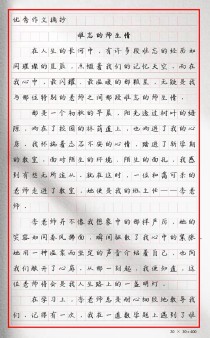 优秀作文摘抄
难忘的师生情
在人生的长河中，有许多段难忘的经历如
同璀璨的星辰，点缀着我们的记忆天空。而在
我心中，最闪耀、最温暖的那颗星，无疑是我
与那位特别的老师之间那段难忘的师生情。
那是一个初秋的早晨，阳光透过稀疏的云
层，洒在了校园的林荫道上，也洒进了我的心
房。我怀揣着忐忑不安的心情，踏进了新学期
的教室。面对陌生的环境、陌生的面孔，我感
到有些无所适从。就在这时，一位和蔼可亲的
老师走进了教室，她就是我的班主任——李老
师。
李老师并不像我想象中的那样严厉，她的
笑容如同春风拂面，瞬间驱散了我心中的紧张。
她用一种温柔而坚定的声音介绍着自己，也向
我们敞开了心扉。从那一刻起，我便知道，这
位老师将会是我人生路上的一盏明灯。
在学习上，李老师总是耐心细致地教导我
们。记得有一次，我在一道数学题上遇到了难
20 × 20=400